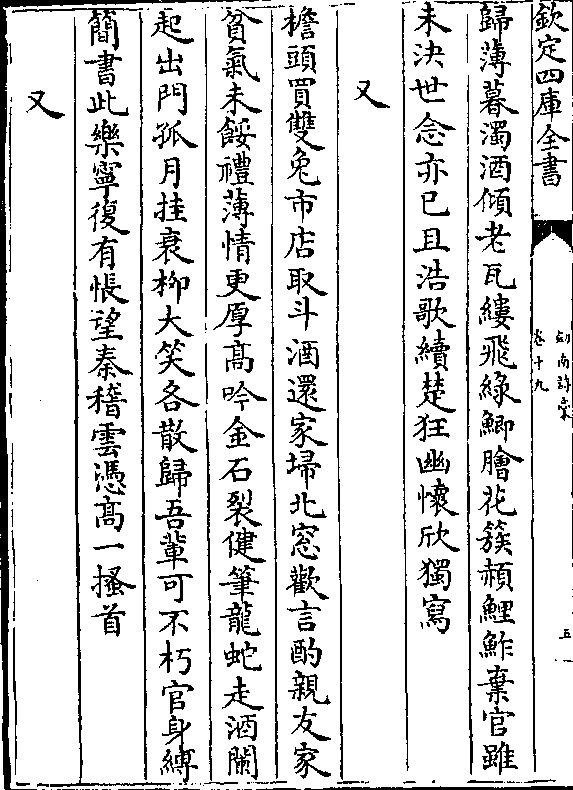 欽定四庫全書
劍南詩稾
卷十九
五
歸薄暮濁酒傾老瓦縷飛綠鯽膾花簇赬鯉鮓棄官雖
未決世念亦已且浩歌續楚狂幽懷欣獨寫
又
檐頭買雙兔市店取斗酒還家埽北窓歡言酌親友家
貧氣未餒禮薄情更厚髙吟金石裂健筆龍蛇走酒闌
起出門孤月挂衰柳大笑各散歸吾輩可不朽官身縛
簡書此樂寧復有悵望秦稽雲憑髙一搔首
又